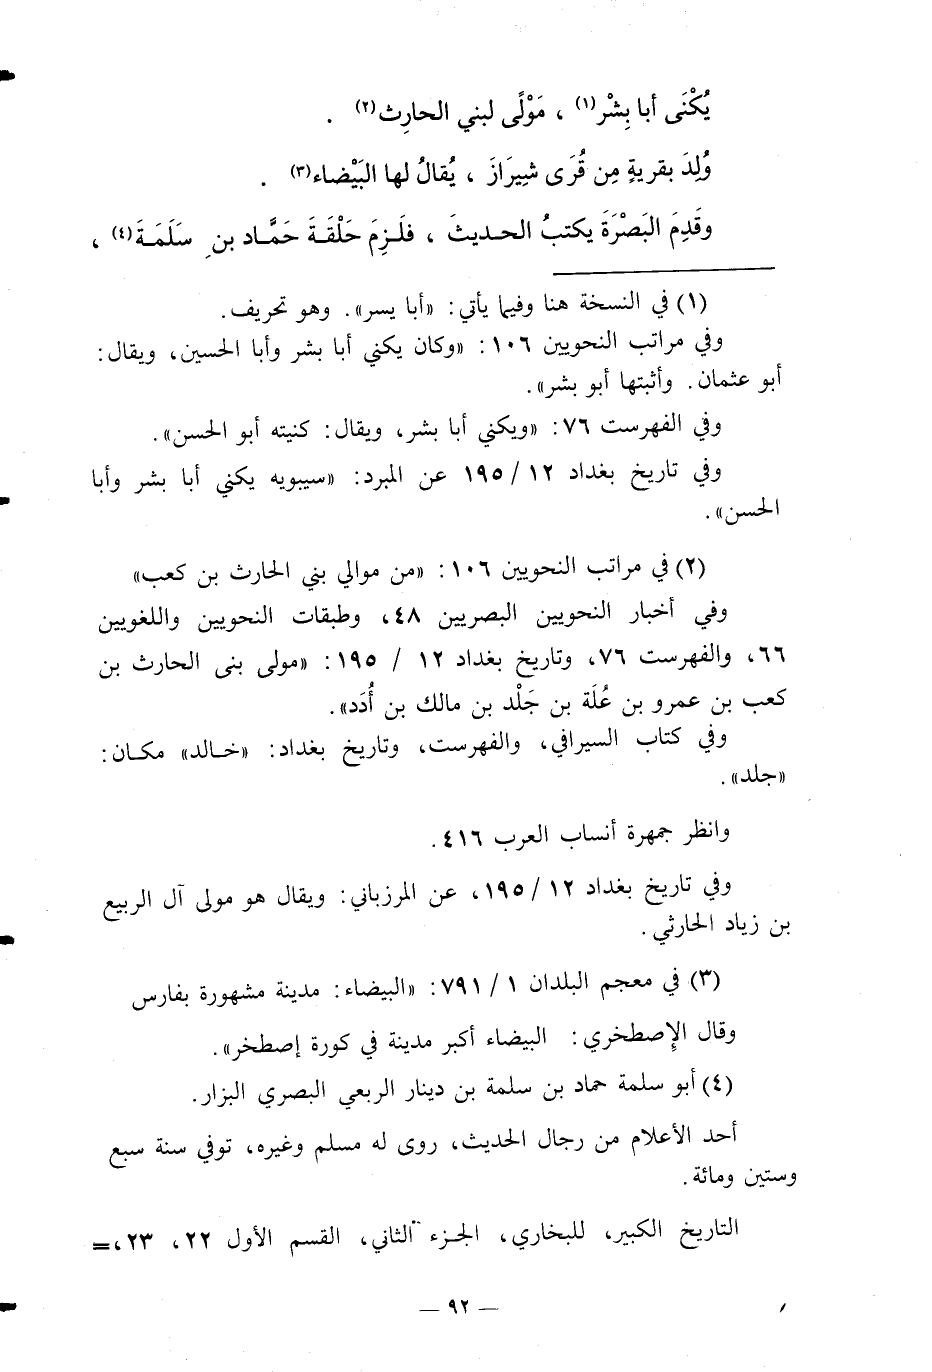 يُكْنَى أبا بِشْر(١) ، مَوْلًى لبني الحارِث(٢) .
وُلِدَ بقريةٍ مِن قُرَى شِيرَازَ ، يُقالُ لها البَيْضاء(٣) .
وقَدِمَ البَصْرَةَ يكتبُ الحديثَ ، فلَزِمَ حَلْقَةَ حَمَّاد بنِ سَلَمَةَ(٤) ،
(١) في النسخة هنا وفيما يأتي: «أبا يسر». وهو تحريف.
وفي مراتب النحويين ١٠٦: «وكان يكني أبا بشر وأبا الحسين، ويقال:
أبو عثمان. وأثبتها أبو بشر».
وفي الفهرست ٧٦: «ويكني أبا بشر، ويقال: كنيته أبو الحسن».
وفي تاريخ بغداد ١٢/ ١٩٥ عن المبرد: «سيبويه يكني أبا بشر وأبا
الحسن».
(٢) في مراتب النحويين ١٠٦: «من موالي بني الحارث بن كعب»
وفي أخبار النحويين البصريين ٤٨، وطبقات النحويين واللغويين
٦٦، والفهرست ٧٦، وتاريخ بغداد ١٢ / ١٩٥: «مولى بنى الحارث بن
كعب بن عمرو بن عُلَة بن جَلْد بن مالك بن أُدَد».
وفي كتاب السيرافي، والفهرست، وتاريخ بغداد: «خالد» مكان:
«جلد».
وانظر جمهرة أنساب العرب ٤١٦.
وفي تاريخ بغداد ١٢ /١٩٥، عن المرزباني: ويقال هو مولى آل الربيع
بن زياد الحارثي.
(٣) في معجم البلدان ١ /٧٩١: «البيضاء: مدينة مشهورة بفارس
وقال الإصطخري: البيضاء أكبر مدينة في كورة إصطخر».
(٤) أبو سلمة حماد بن سلمة بن دينار الربعي البصري البزار.
أحد الأعلام من رجال الحديث، روى له مسلم وغيره، توفي سنة سبع
وستين ومائة.
التاريخ الكبير، للبخاري، الجزء الثاني، القسم الأول ٢٢، ٢٣،=
— ٩٢ —